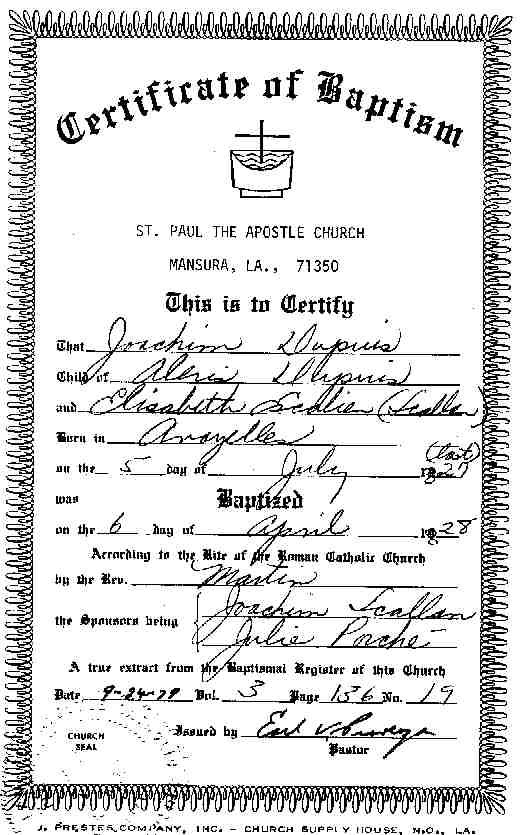 Certificate of Baptism
ST. PAUL THE APOSTLE CHURCH
MANSURA, LA., 71350
This is to Certify
That Joachim Dupuis
Child of Alexis Dupuis
and Elisabeth Scalien (Scallan)
Born in Avoyelles
(last)
on the 5 day of July 1827
was Baptized
on the 6 day of April 1828
According to the Rite of the Roman Catholic Church
by the Rev. Martin
the Sponsors being Joachim Scallan
Julie Porché
A true extract from the Baptismal Register of this Church
Date 9-24-79 Vol. 3 Page 136 No. 19
CHURCH SEAL
Issued by Earl V.
Pastor
J. PRESTER COMPANY, INC. - CHURCH SUPPLY HOUSE, N.O., LA.